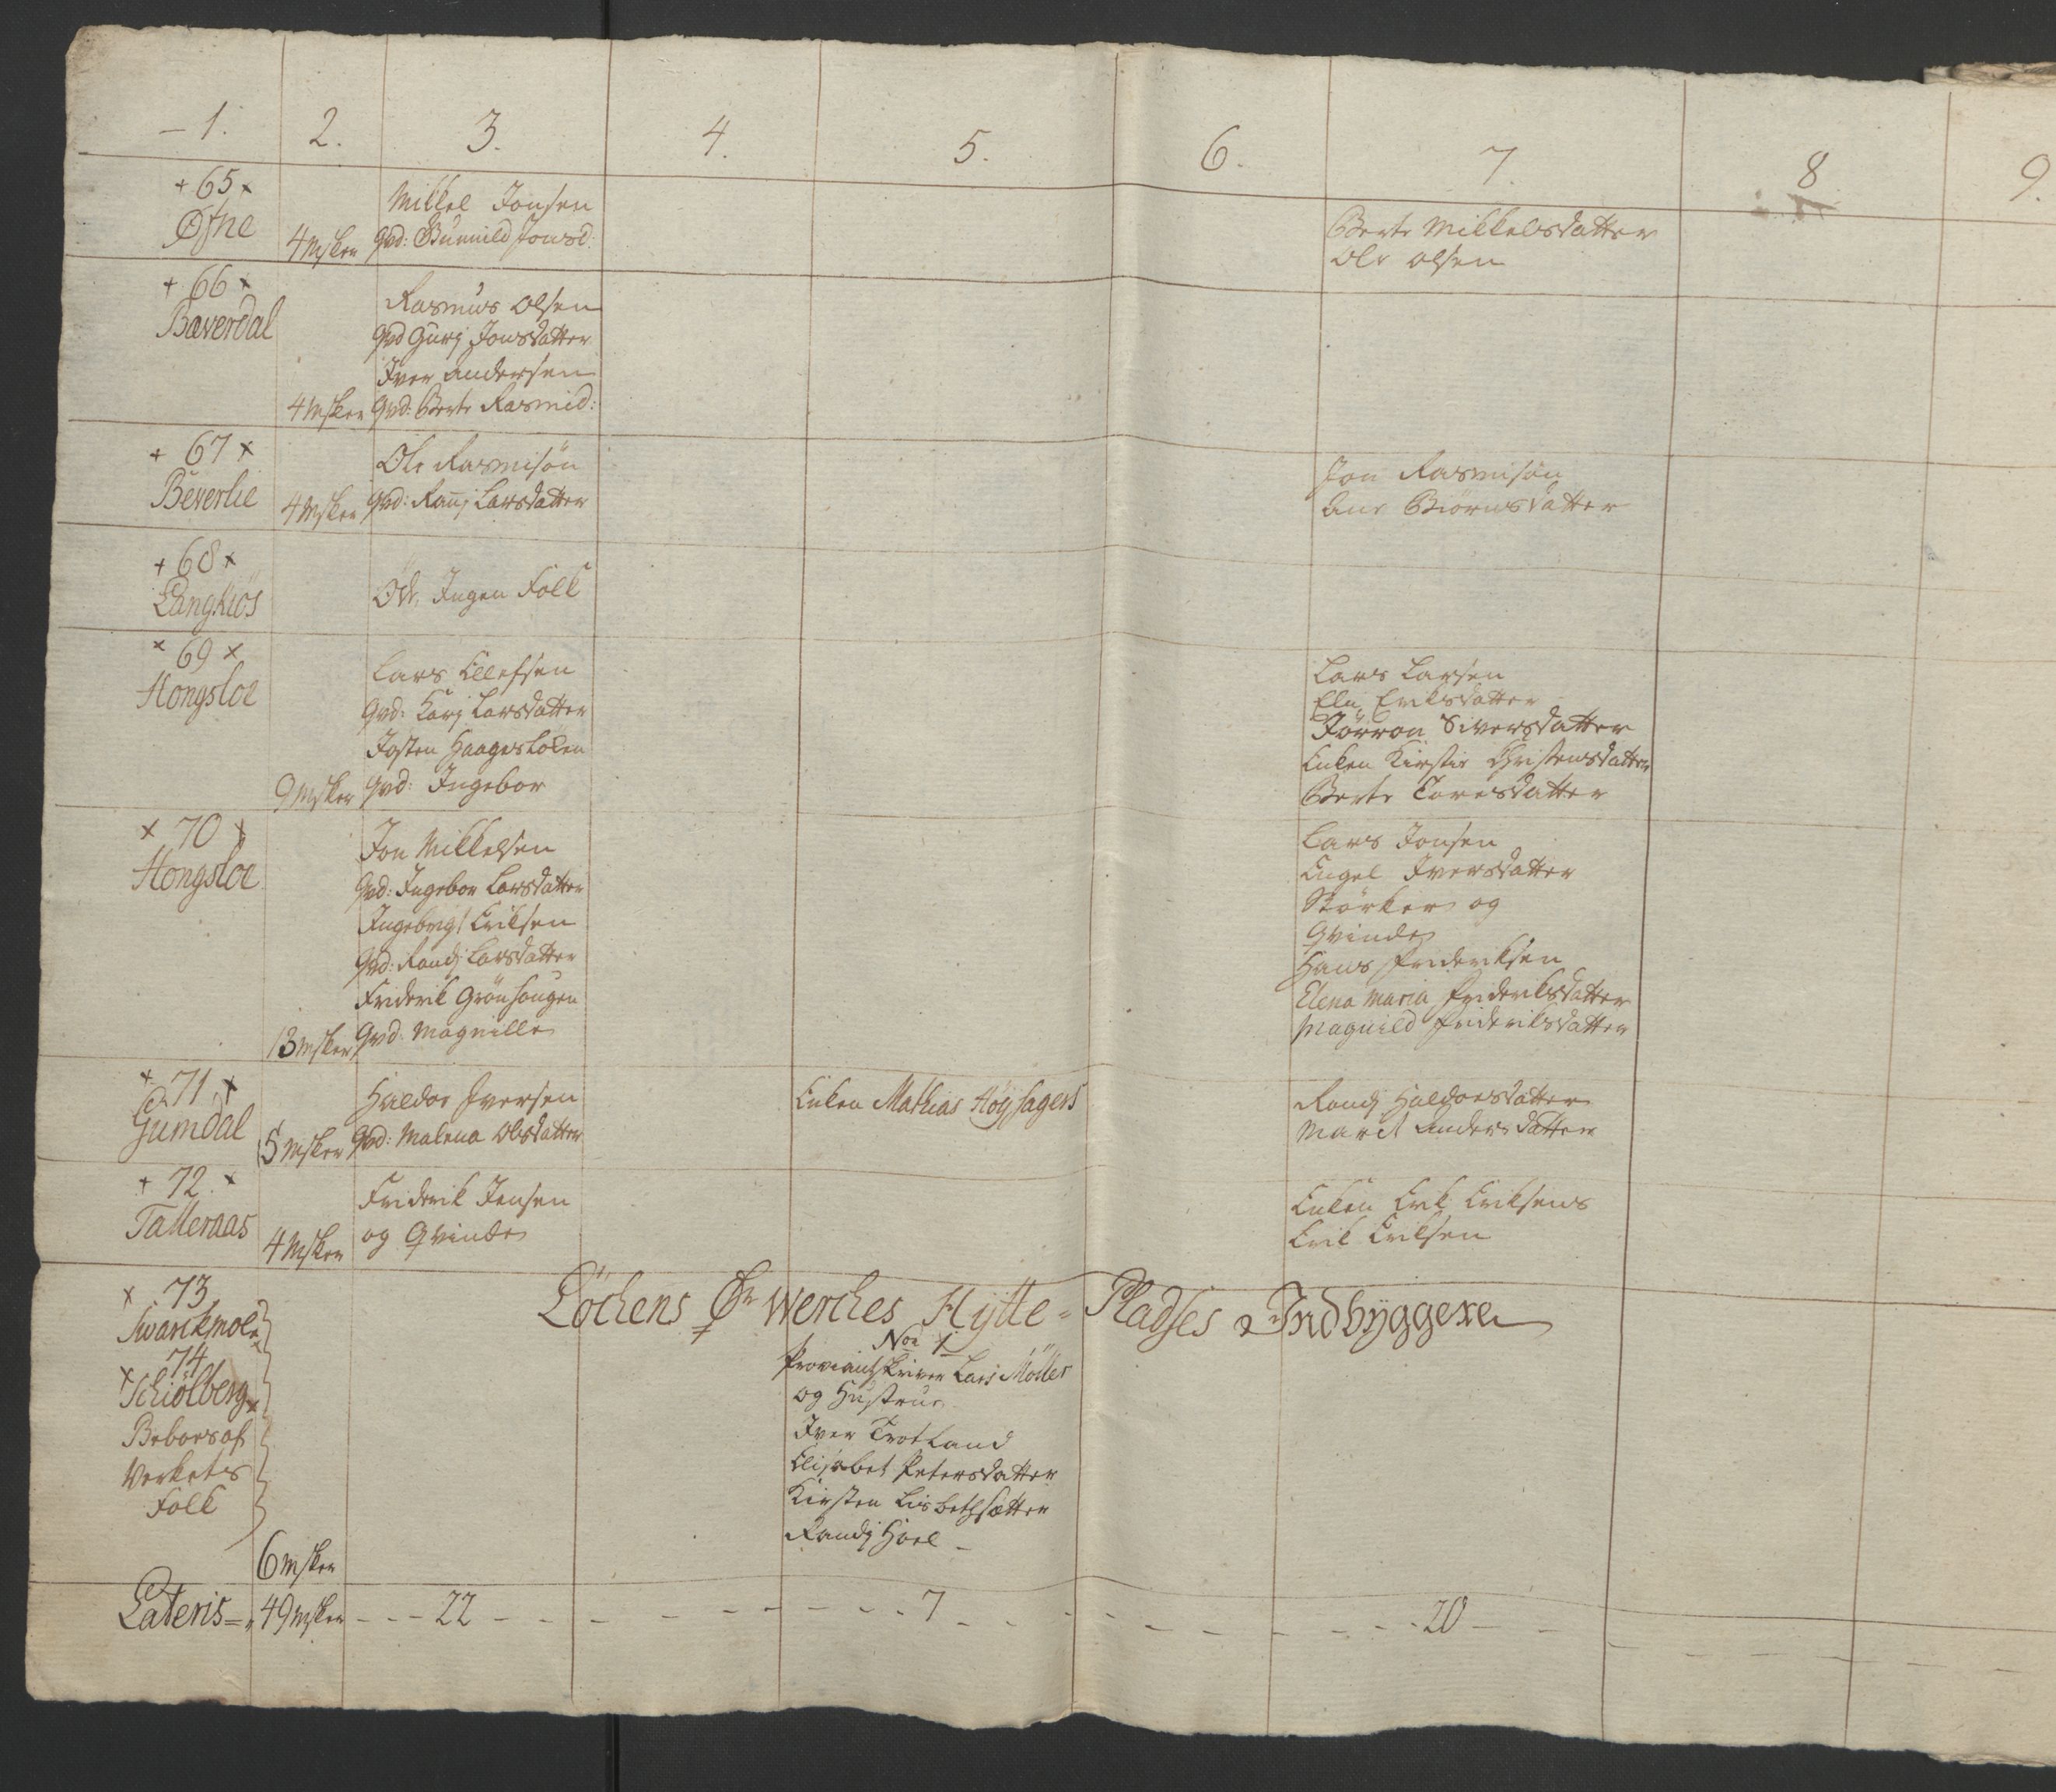 1. 2. 3. 4. 5. 6. 7. 8 9.
+ 65 x
Øfne
4 Msker
Mikkel Jonsen
Qvd: Gunnild Jonsd:
Berte Mikkelsdatter
Ole Olsen
+ 66 x
Bæverdal
4 Msker
Rasmus Olsen
Qvd Gurj Jonsdatter
Iver Andersen
Qvd: Berte Rasmid:
+ 67 x
Beverlie
4 Msker
Ole Rasmisön
Qvd: Ranj Larsdatter
Jon Rasmisön
Ane Biörnsdatter
+ 68 x
Langkiös
Öde, Ingen Folk
x 69 x
Hongsloe
9 Msker
Lars Ellefsen
Qvd: Karj Larsdatter
Josten Haagesholen
Qvd: Ingebor
Lars Larsen
Eli Eriksdatter
Jörron Siversdatter
Enken Kirstie Christensdatter
Berte Toresdatter
x 70 x
Hongsloe
13 Msker
Jon Mikkelsen
Qvd: Ingebor Larsdatter
Ingebrigt Eriksen
Qvd: Randj Larsdatter
Friderik Grönhougen
Qvd: Magnille
Lars Jonsen
Engel Iversdatter
Störker og
Qvinde
Hans Frideriksen
Elena Maria Frideriksdatter
Magnild Frideriksdatter
x 71 x
Gumdal
5 Msker
Haldor Iversen
Qvd: Malena Olsdatter
Enken Mathias Höysagers
Randj Haldorsdatter
Marit Andersdatter
+ 72. x
Talleraas
4 Msker
Friderik Jensen
og Qvinde
Enken Erik Eriksens
Erik Eriksen
Löckens Werckes Hytte-Pladses Indbyggere
x 73
Svarckmoe
x 74
Schiölberg
Beboes af
Verkets
Folk
6 Msker
No 1
Proviantskriver Lars Möller
og Hustrue
Iver Trotland
Elisabet Petersdatter
Kirsten Lisbethsætter
Randj Hoel
Lateris 49 Msker - - - 22 - - - 7 - - - 20 - -